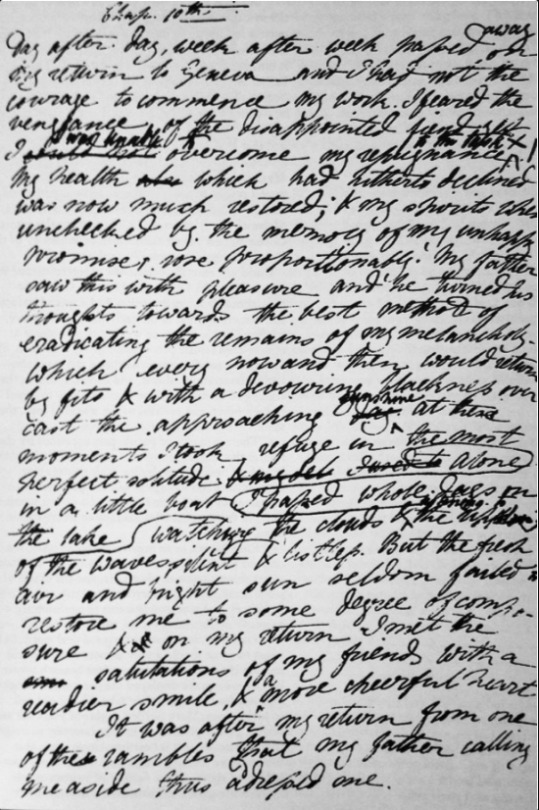 Chap. 10th
Day after day, week after week passed away on
my return to Geneva and I had not the
courage to commence my work. I feared the
vengeance of the disappointed fiend yet
I could not was unable to overcome my repugnance to the task
My health also which had hitherto declined
was now much restored; & my spirits when
unchecked by the memory of my unhappy
promise, rose proportionably. My father
saw this with pleasure and he turned his
thoughts towards the best method of
eradicating the remains of my melancholy
which every now and then would return
by fits & with a devouring blackness over
cast the approaching day sunshine at these
moments I took refuge in the most
perfect solitude I used to alone
in a little boat I passed whole days on
the lake watching the clouds & the
of the waves silent & listless. But the fresh
air and bright sun seldom failed to
restore me to some degree of compo-
sure & on my return I met the
salutations of my friends with a
readier smile & a more cheerful heart
It was after my return from one
of these rambles that my father calling
me aside thus adressed me.